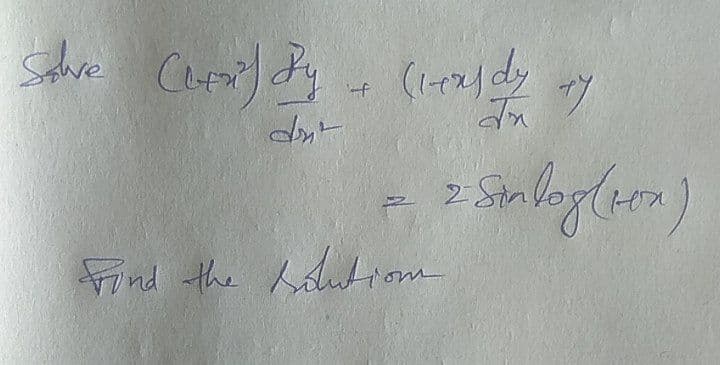 Solve (1+x²) d²y/dx² + (1+x) dy/dx +y
= 2 Sin log(1+x)
Find the solution